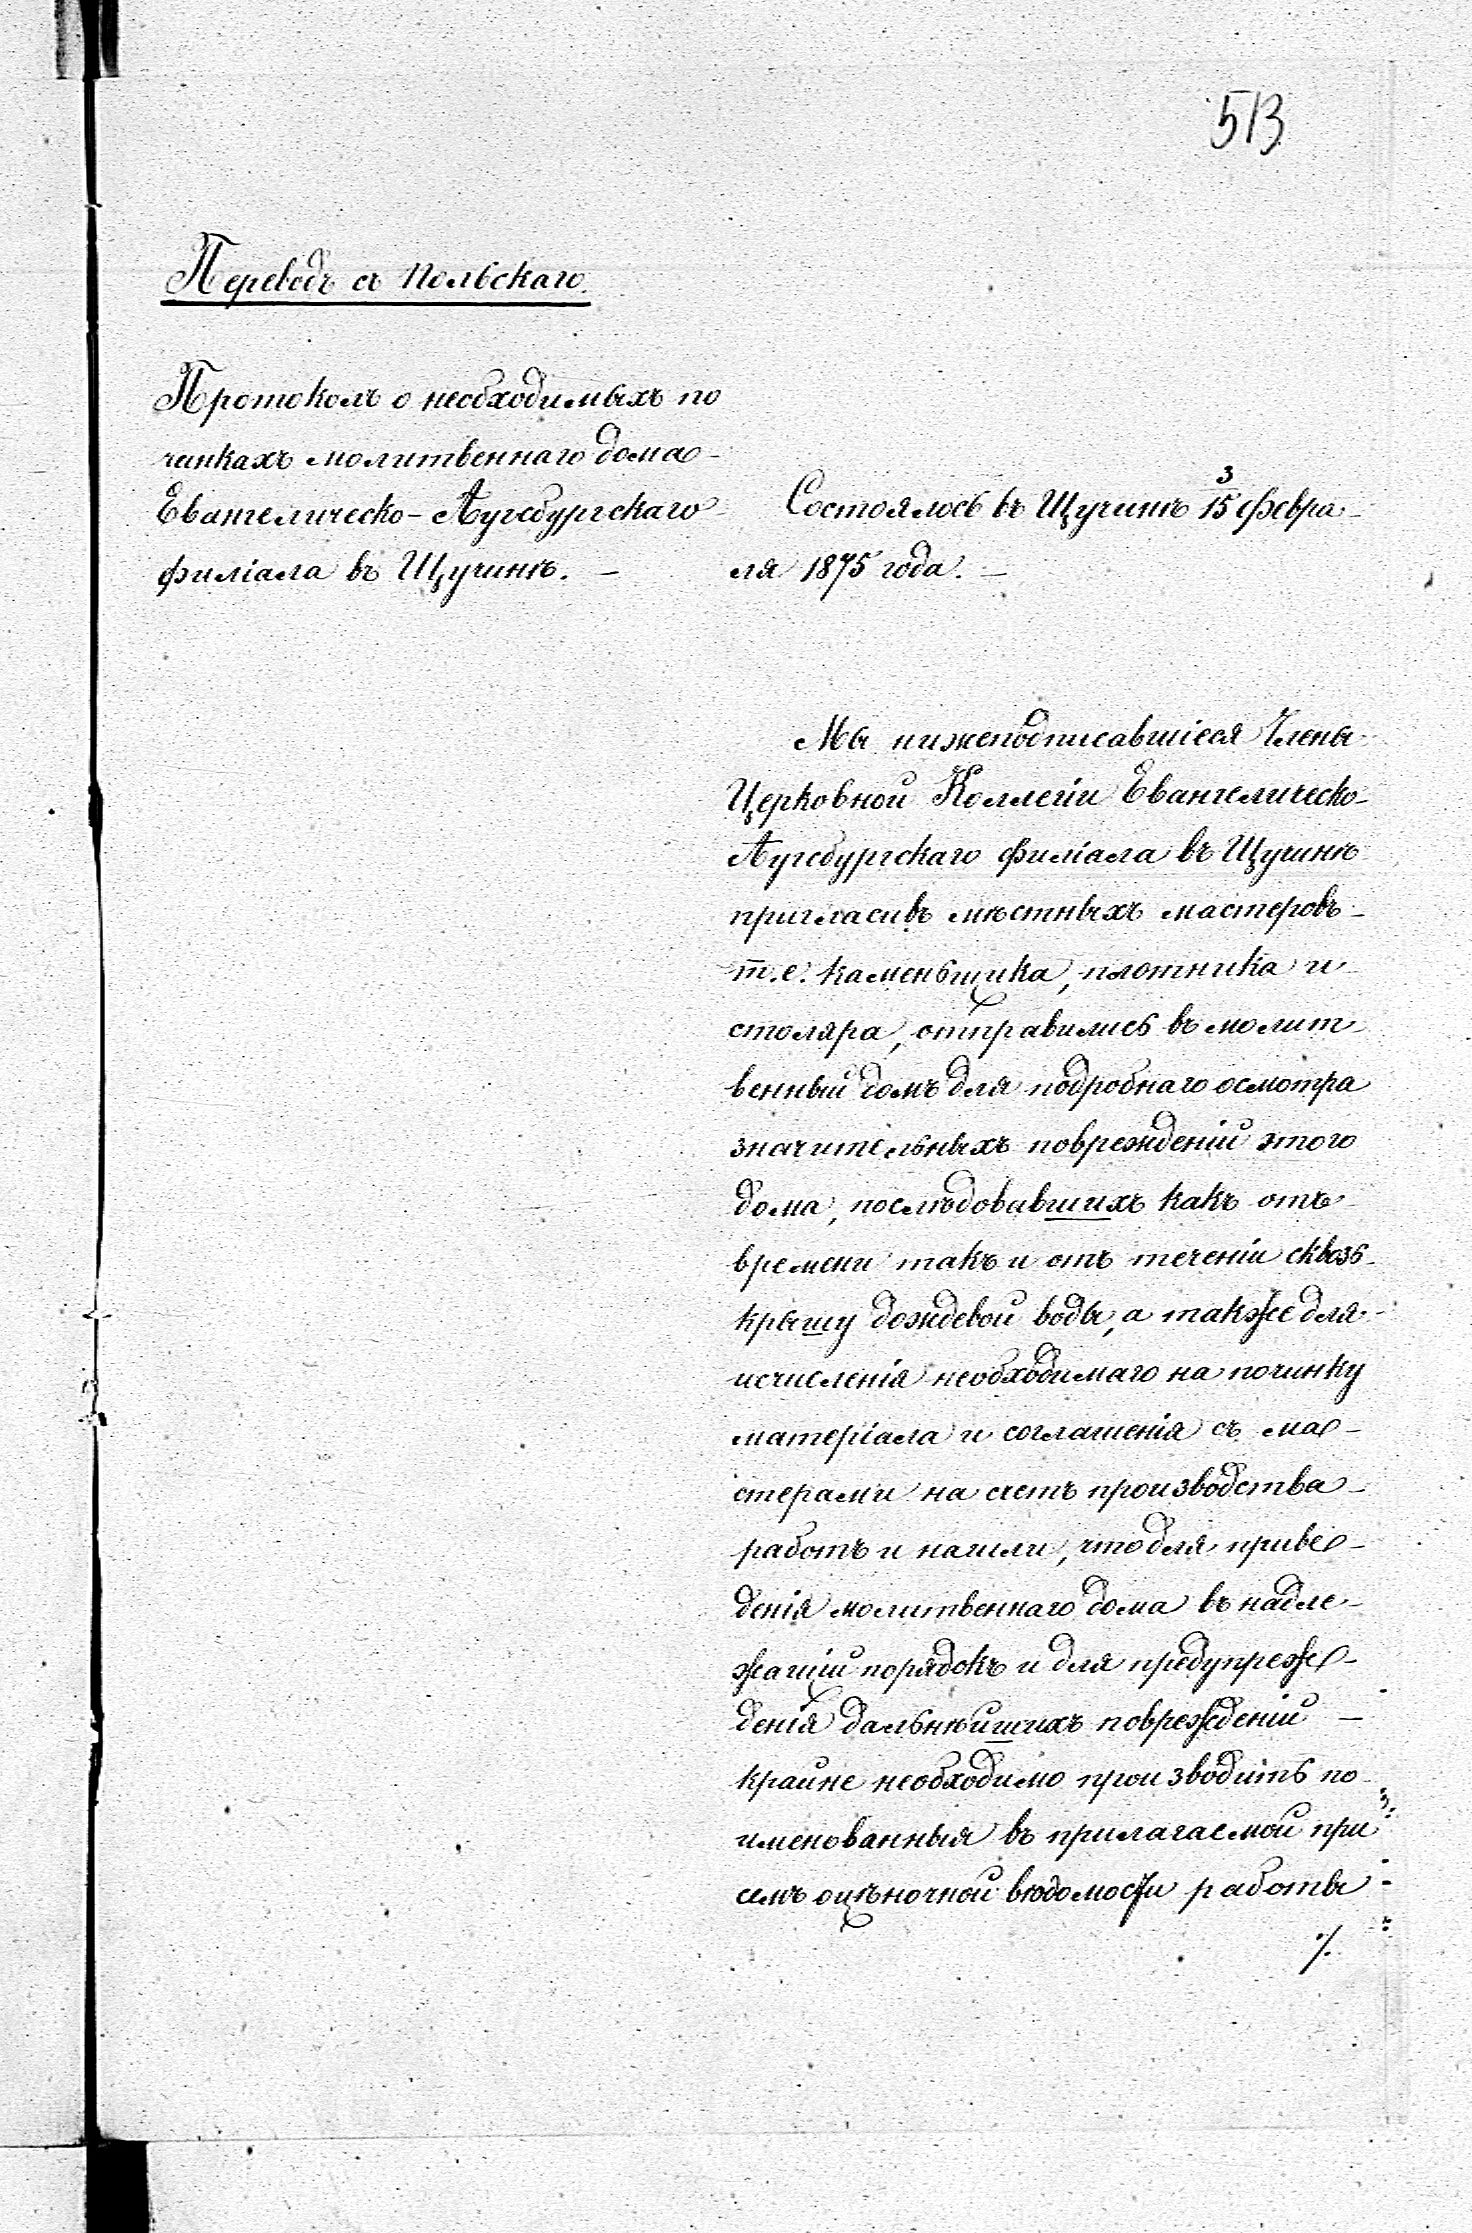 513
Переводъ съ Польскаго.
Протоколъ о необходимыхъ по
чинкахъ молитвеннаго дома
Евангелическо-Аугсбургскаго
филіала въ Щучинѣ. –
Состоялось въ Щучинѣ 3/15 февра-
ля 1875 года. –
Мы нижеподписавшіеся Члены
Церковной Коллегіи Евангелическо-
Аугсбургскаго филіала въ Щучинѣ
пригласивъ мѣстныхъ мастеровъ –
т.е. каменьщика, плотника и
столяра, отправились въ молит-
венный домъ для подробнаго осмотра
значительныхъ поврежденій этого
дома, послѣдовавшихъ какъ отъ
времени такъ и отъ теченіи сквозь
крышу дождевой воды, а также для
исчисленія необходимаго на починку
матеріала и соглашенія съ ма-
стерами на счетъ производства
работъ и нашли, что для приве-
денія молитвеннаго дома въ надле-
жащій порядокъ и для предупреж-
денія дальнѣйшихъ поврежденій –
крайне необходимо производить по
именованныя въ прилагаемой при
семъ оцѣночной вѣдомости работы
·/.